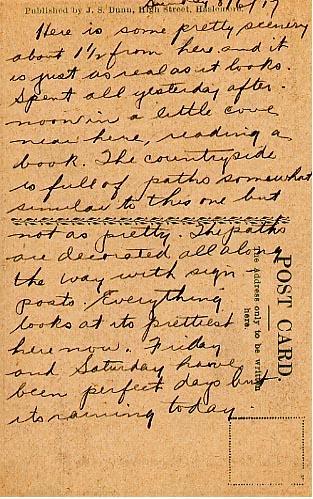 Published by J. S. Dunn, High Street, Haslemere
Sunday 8/6/19
Here is some pretty scenery
about 1½ from here and it
is just as real as it looks.
Spent all yesterday after-
noon in a little cove
near here, reading a
book. The countryside
is full of paths somewhat
similar to this one but
not as pretty. The paths
are decorated all along
the way with sign-
posts. Everything
looks at its prettiest
here now. Friday
and Saturday have
been perfect days but
its raining today.
POST CARD.
The address only to be written
here.